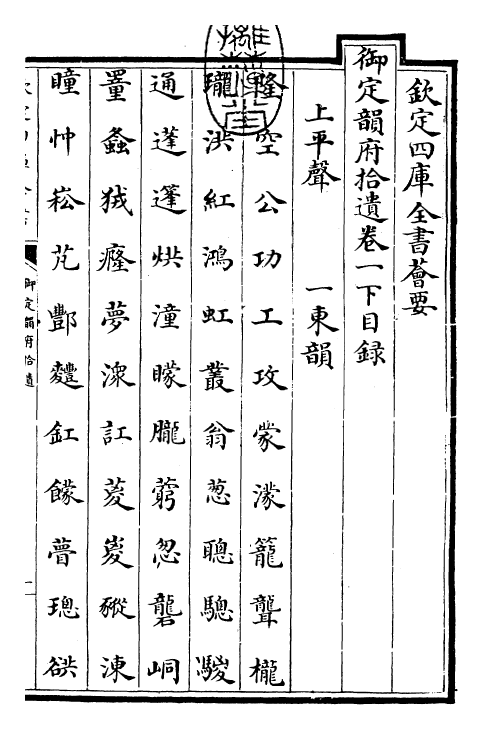 欽定四庫全書薈要
御定韻府拾遺卷一下目録
上平聲　一東韻
隆空公功工攻蒙濛籠聾櫳
瓏洪紅鴻虹叢翁蔥聰驄騣
通蓬篷烘潼曚朧藭怱礱峒
罿螽狨癃夢潨訌葼嵏豵涷
曈忡崧芃酆麷釭饛瞢璁谼
御定韻府拾遺